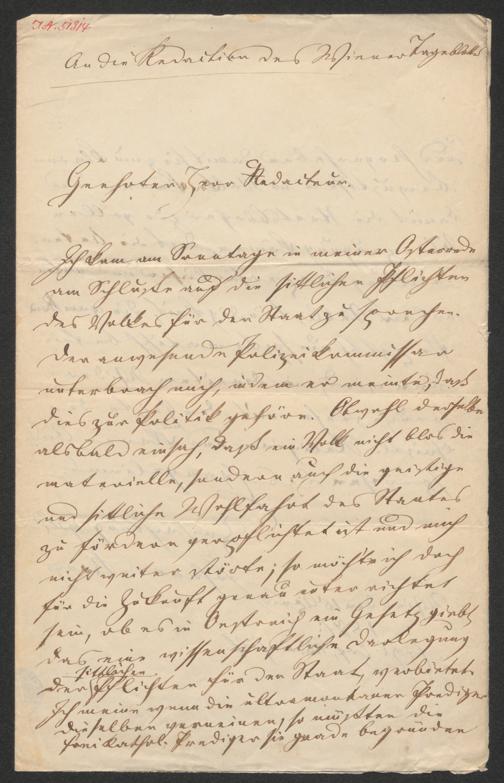 I.N. 51314
An die Redaction des Wiener Tageblattes
Geehrter Herr Redacteur.
Ich kam am Sonntage in meiner Osterrede
am Schluße auf die sittlichen Pflichten
des Volkes für den Staat zu sprechen.
Der anwesende Polizeikommissar
unterbrach mich, indem er meinte, daß
dies zur Politik gehöre. Obwohl derselbe
alsbald einsah, daß ein Volk nicht blos die
materielle, sondern auch die geistige
und sittliche Wohlfahrt des Staates
zu fördern verpflichtet ist und mich
nicht weiter störte; so möcht ich doch
für die Zukunft genau unterrichtet
sein, ob es in Oestreich ein Gesetz giebt
das eine wissenschaftliche Darlegung
der sittlichen Pflichten für den Staat verbietet
Ich meine wenn die ultramontanen Prediger
dieselben verneinen, so müßten die
freikathol. Prediger sie grade begründen